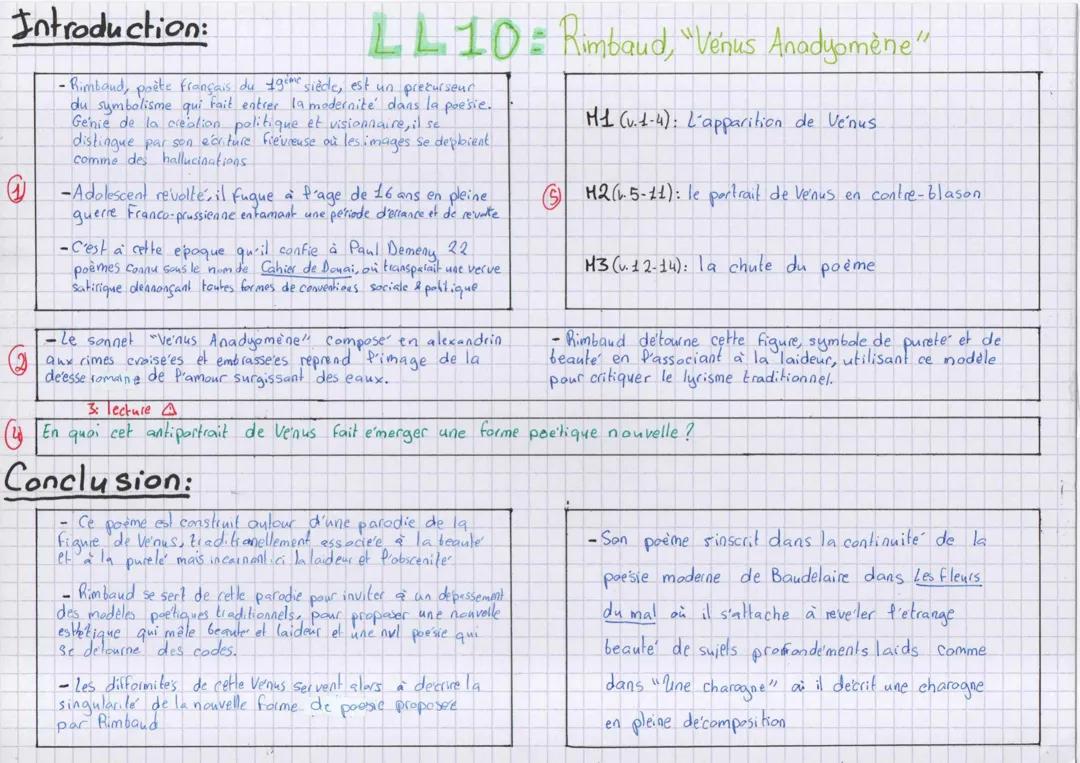 Introduction:
LL10: Rimbaud, "Vénus Anadyomène"
- Rimbaud, poète français du 19ème siècle, est un precurseur
du symbolisme qui fait entrer la modernité dans la poesie.
Génie de la création politique et visionnaire, il se
distingue par son écriture fievreuse où les images se deploient
comme des hallucinations
1
- Adolescent révolté, il fugue à l'age de 16 ans en pleine
guerre Franco-prussienne entamant une période d'errance et de revolte
- C'est à cette epoque qu'il confie à Paul Demeny 22
poèmes connu sous le nom de Cahier de Douai, où transparait une verve
satirique dennonçant toutes formes de conventions sociale & politique
5
M1 (v.1-4): L'apparition de Vénus
M2 (v.5-11): le portrait de Vénus en contre-blason
M3 (v.12-14): la chute du poème
2
- Le sonnet "Vénus Anadyomène" composé en alexandrin
aux rimes croisées et embrassées reprend l'image de la
déesse romaine de l'amour surgissant des eaux.
- Rimbaud détourne cette figure, symbole de pureté et de
beauté en l'associant à la laideur, utilisant ce modèle
pour critiquer le lyrisme traditionnel.
3: lecture ⚠
4
En quoi cet antiportrait de Vénus fait émerger une forme poétique nouvelle ?
Conclusion:
- Ce poème est construit autour d'une parodie de la
figure de Vénus, traditionellement associée à la beauté
et à la pureté mais incarnant ici la laideur et l'obscenité
- Rimbaud se sert de cette parodie pour inviter à un depassement
des modèles poetiques traditionnels, pour proposer une nouvelle
esthétique qui mêle beauté et laideur et une nvl poésie qui
se detourne des codes.
- Les difformités de cette Vénus servent alors à decrire la
singularité de la nouvelle forme de poesie proposée
par Rimbaud
- Son poème s'inscrit dans la continuité de la
poésie moderne de Baudelaire dans Les Fleurs
du mal où il s'attache à réveler l'etrange
beauté de sujets profondéments laids comme
dans "Une charogne" où il décrit une charogne
en pleine décomposition